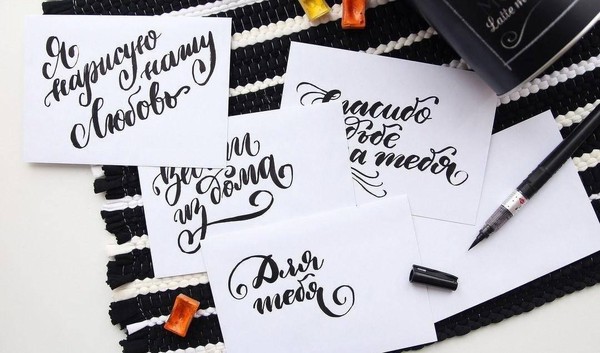 Я
нарисую
нашу
Любовь
Спасибо
судьбе
за тебя
из дома
Для
тебя
Latte